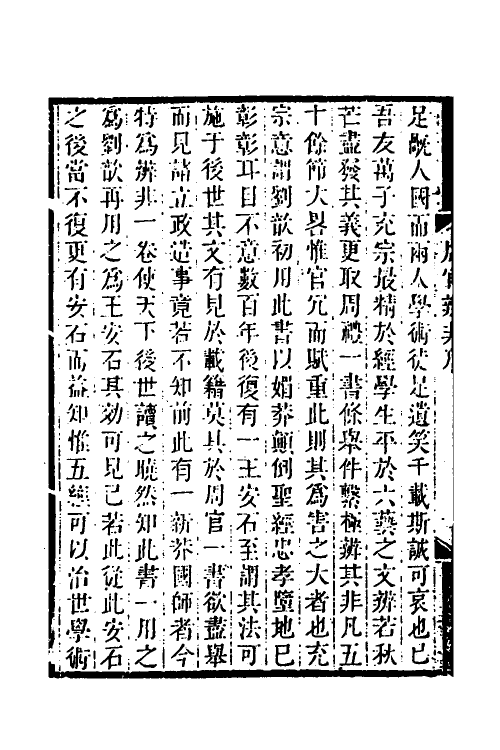 周官辨非序
足戕人國而兩人學術徒足遺笑千載斯誠可哀也已
吾友萬子充宗最精於經學生平於六藝之文辨若秋
芒盡發其義更取周禮一書條舉件繫極辨其非凡五
十餘節大畧惟官冗而賦重此則其為害之大者也充
宗意謂劉歆初用此書以媚莽顛倒聖經忠孝墮地已
彰彰耳目不意數百年後復有一王安石至謂其法可
施于後世其文有見於載籍莫具於周官一書欲盡舉
而見諸立政造事竟若不知前此有一新莽國師者今
特為辨非一卷使天下後世讀之曉然知此書一用之
為劉歆再用之為王安石其効可見已若此從此安石
之後當不復更有安石而益知惟五經可以治世學術